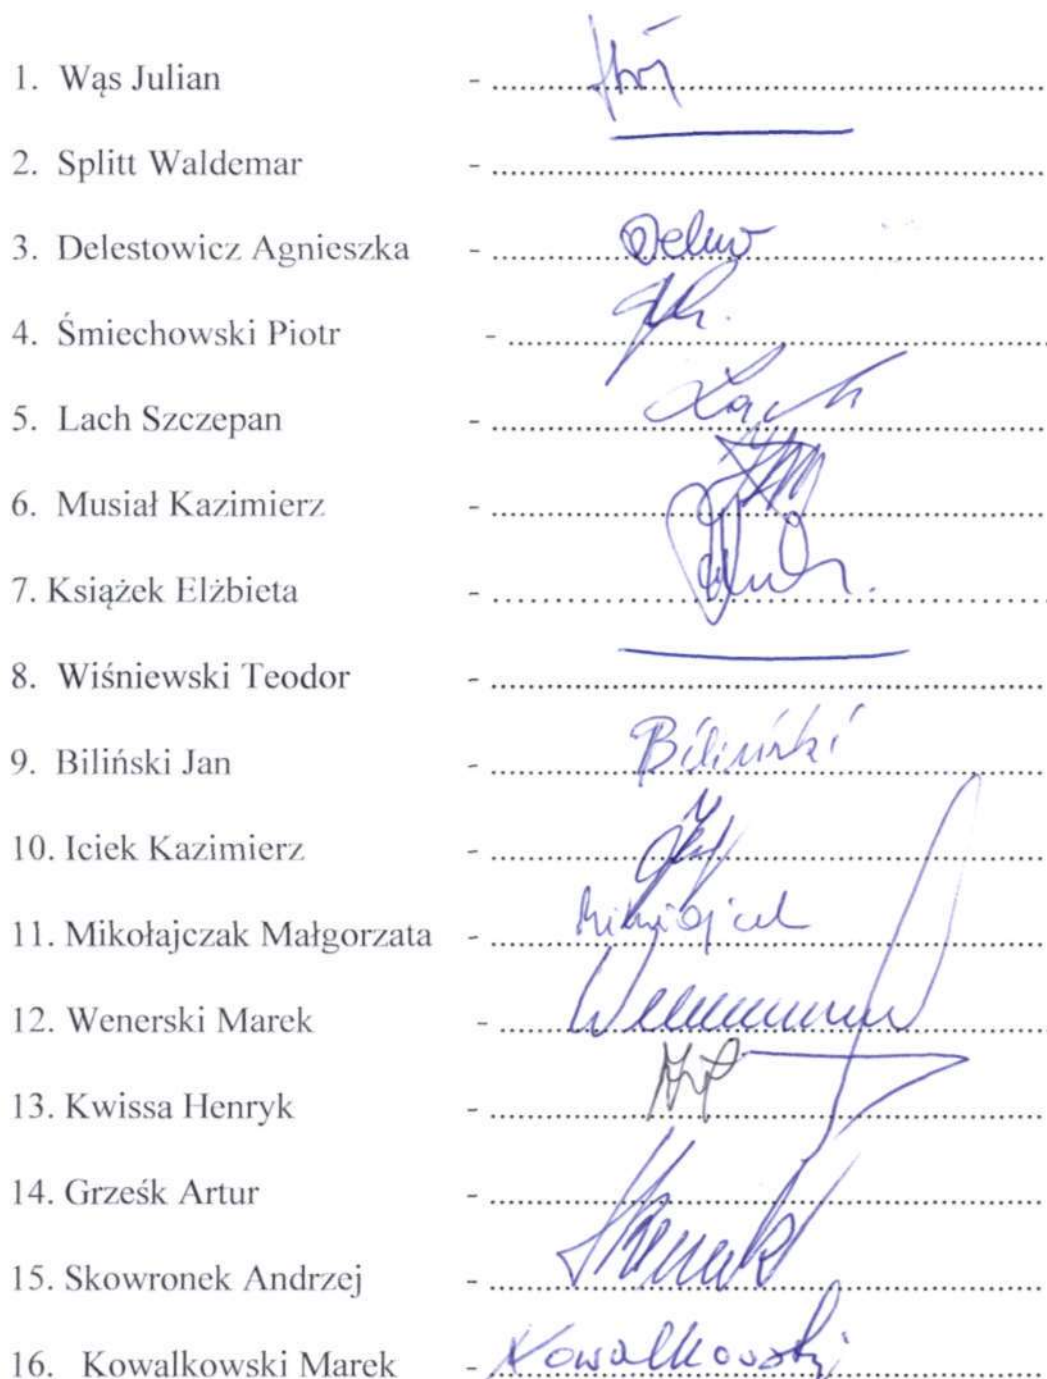 1. Wąs Julian - ..........
2. Splitt Waldemar - ..........
3. Delestowicz Agnieszka - ..........
4. Śmiechowski Piotr - ..........
5. Lach Szczepan - .......... Lach
6. Musiał Kazimierz - ..........
7. Książek Elżbieta - ..........
8. Wiśniewski Teodor - ..........
9. Biliński Jan - .......... Biliński
10. Iciek Kazimierz - ..........
11. Mikołajczak Małgorzata - ..........
12. Wenerski Marek - ..........
13. Kwissa Henryk - ..........
14. Grześk Artur - ..........
15. Skowronek Andrzej - ..........
16. Kowalkowski Marek - .......... Kowalkowski